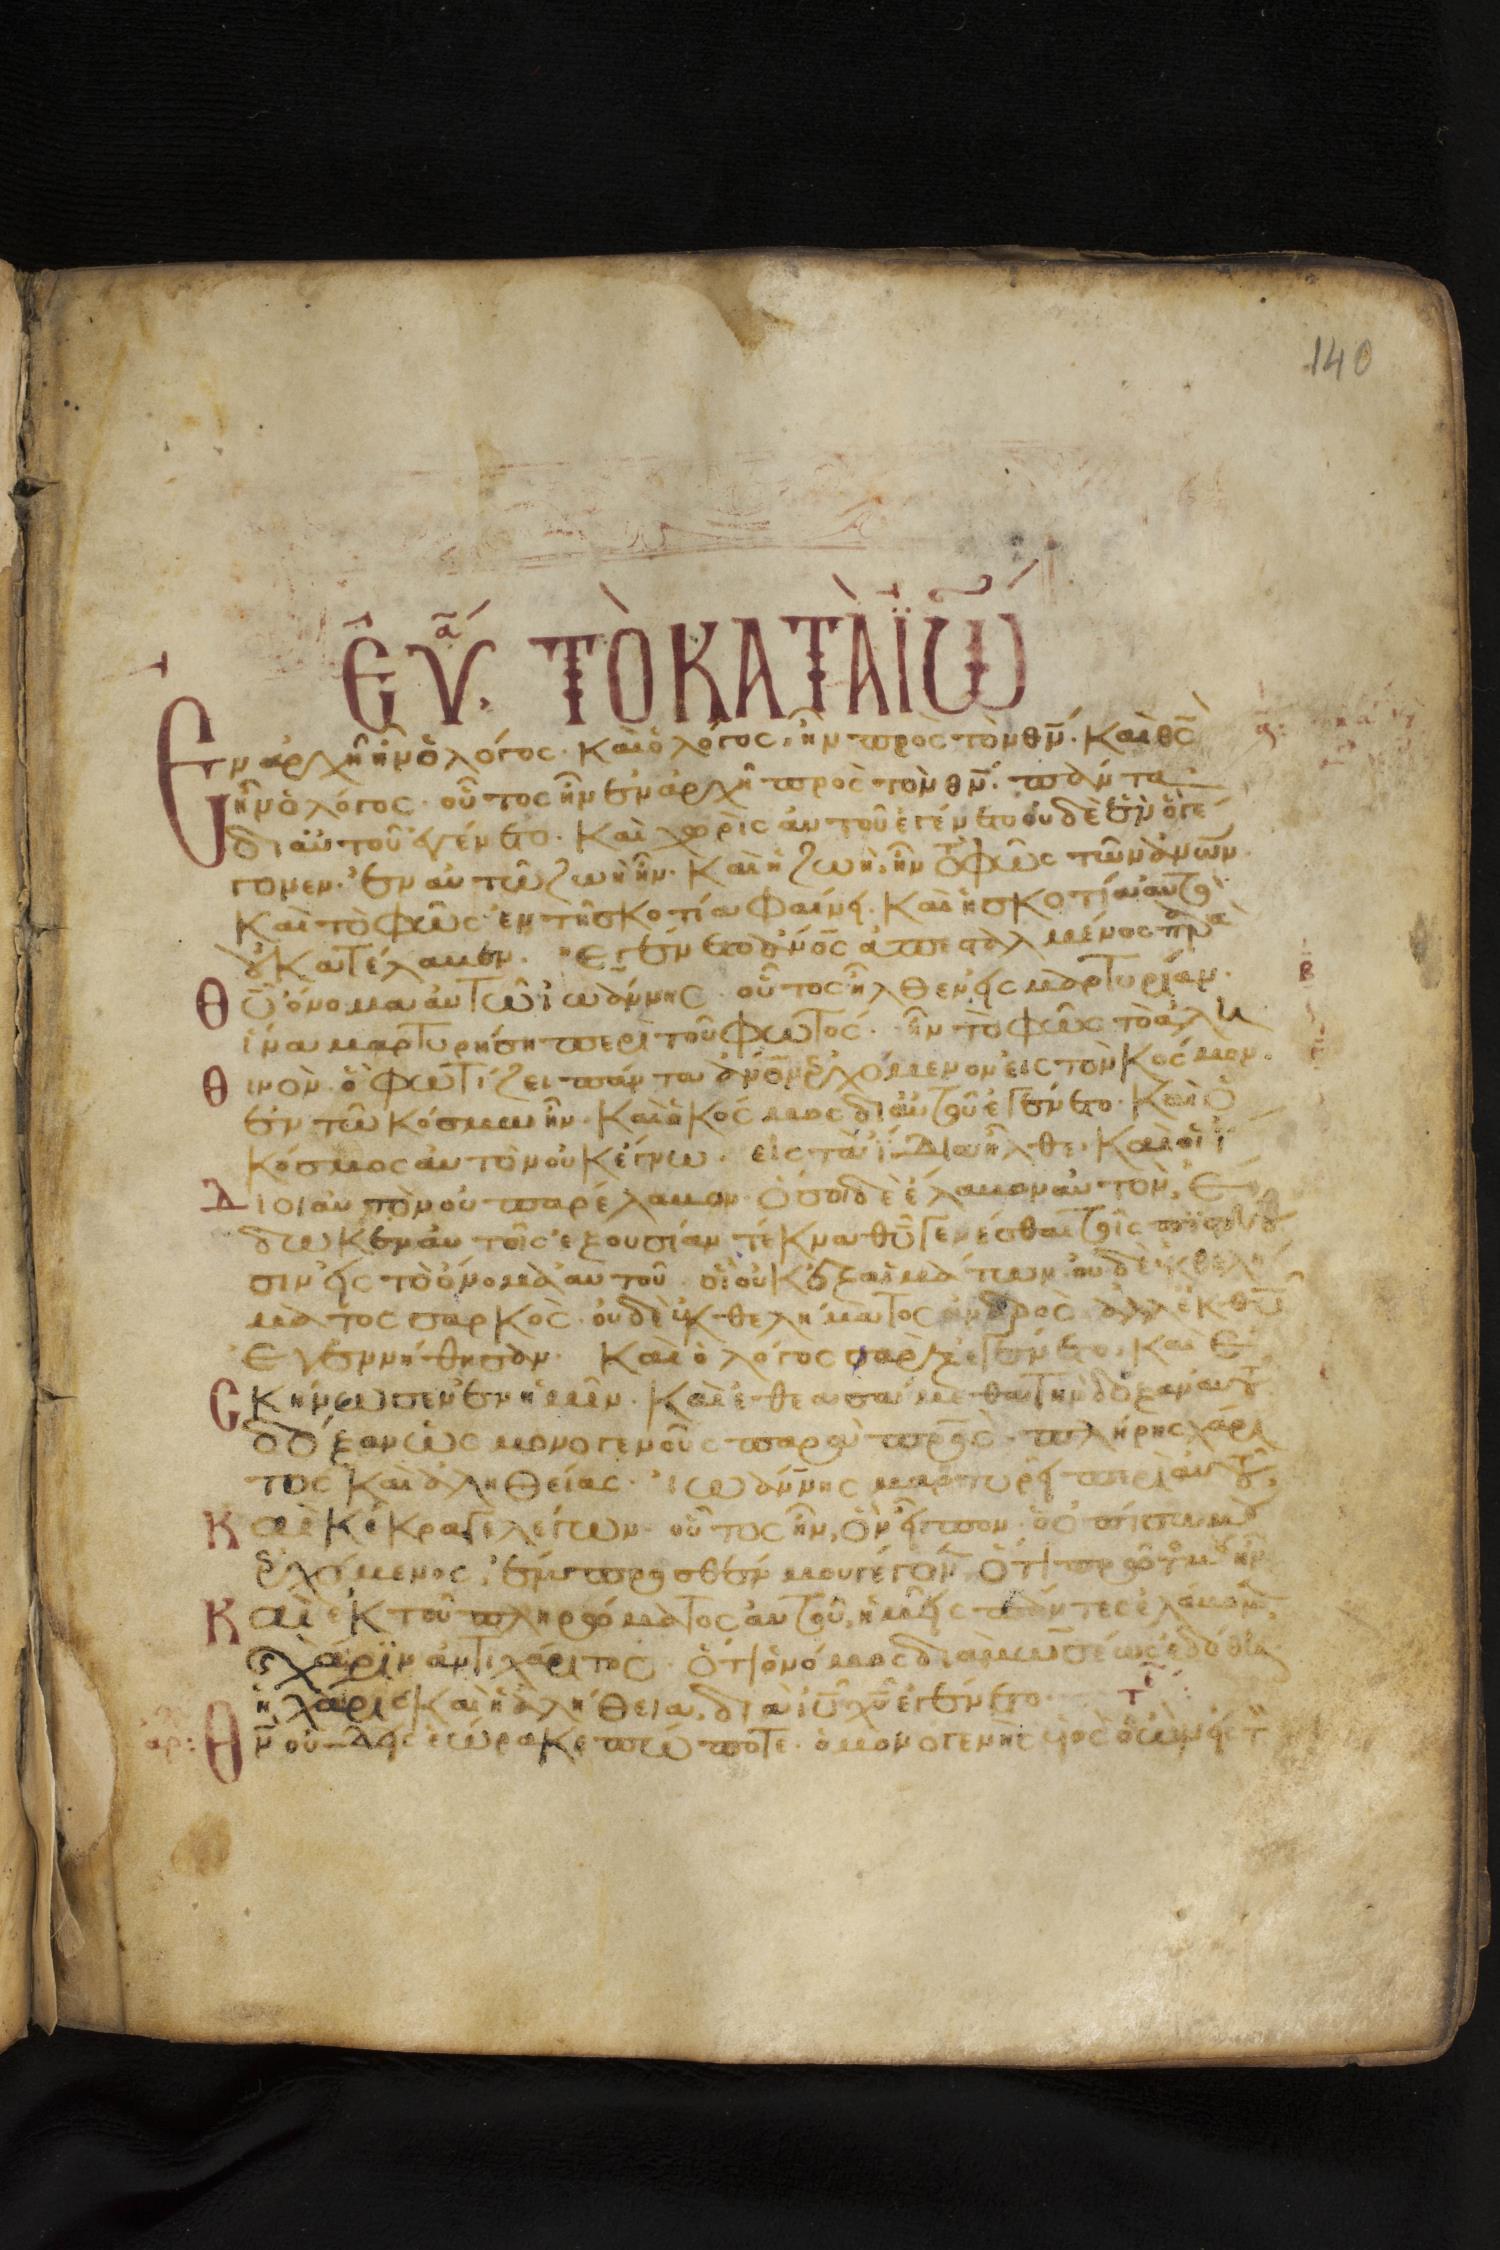 140
ΕΥᾺ. ΤῸ ΚΑΤᾺ ἸΩ
Ἐν ἀρχῆ ἦν ὁ λόγος· καὶ ὁ λόγος, ἦν πρὸς τὸν θν̄· καὶ θς̄
ἦν ὁ λόγος· οὗτος ἦν ἐν ἀρχῆ πρὸς τὸν θν̄· πάντα
δι αὐτοῦ ἐγένετο· καὶ χωρὶς αὐτοῦ ἐγένετο οὐδὲ ἓν ὃ γέ
γονεν· ἐν αὐτῶ ζωὴ ἦν· καὶ ἡ ζωὴ, ἦν τὸ φῶς τῶν ἀνω̄ν·
καὶ τὸ φῶς ἐν τῆ σκοτία φαίνει· καὶ ἡ σκοτία αὐτὸ
οὐ κατέλαβεν· Ἐγένετο ἀνο̄ς ἀπεσταλμένος παρὰ
Θῦ ὄνομα αὐτῶ ἰωάννης· οὗτος ἦλθεν εἰς μαρτυρίαν·
ἵνα μαρτυρήση περὶ τοῦ φωτός· ἦν τὸ φῶς τὸ ἀλη
θινὸν· ὃ φωτίζει πάντα ἀνο̄ν ἐρχόμενον εἰς τὸν κόσμον·
ἐν τῶ κόσμω ἦν· καὶ ὁ κόσμος δι αὐτοῦ ἐγένετο· καὶ ὁ
κόσμος αὐτὸν οὐκ ἔγνω· εἰς τὰ ἴδια ἦλθε· καὶ οἱ ἴ
Διοι αὐτὸν οὐ παρέλαβον· ὅσοι δὲ ἔλαβον αὐτὸν, ἔ
δωκεν αὐτοῖς ἐξουσίαν τέκνα θῦ γενέσθαι τοῖς πιστεύου
σιν εἰς τὸ ὄνομα αὐτοῦ· οἳ οὐκ ἐξ αἱμάτων οὐδὲ ἐκ θελή
ματος σαρκὸς· οὐδὲ ἐκ θελήματος ἀνδρὸς ἀλλ ἐκ θῦ
Ἐγεννήθησαν· καὶ ὁ λόγος σὰρξ ἐγένετο, καὶ ἐ
Σκήνωσεν ἐν ἡμῖν· καὶ ἐθεασάμεθα τὴν δόξαν αὐτοῦ
δόξαν ὡς μονογενοῦς παρὰ πρς̄· πλήρης χάρι
τος καὶ ἀληθείας· ἰωάννης μαρτυρεῖ περὶ αὐτοῦ,
Καὶ κέκραγε λέγων· οὗτος ἦν, ὃν εἶπον· ὁ ὀπίσω μου
ἐρχόμενος, ἔμπροσθέν μου γέγονεν, ὅτι πρῶτός μου ἦν
Καὶ ἐκ τοῦ πληρώματος αὐτοῦ, ἡμεῖς πάντες ἐλάβομεν,
ϗ χάριν ἀντὶ χάριτος· ὅτι ὁ νόμος διὰ μωσέως ἐδόθη
ἡ χάρις καὶ ἡ ἀλήθεια, διὰ ιῦ χῦ ἐγένετο·
Θν̄ οὐδεὶς ἑώρακε πώποτε· ὁ μονογενὴς υἱὸς ὁ ὢν εἰς τ